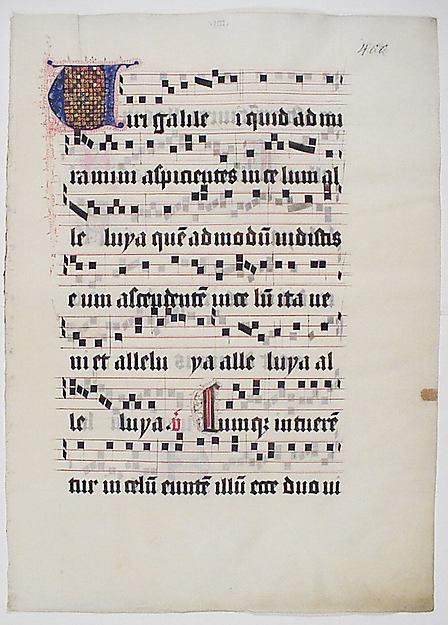 400
Uiri galile i quid admi
ramini aspicientes in ce lum al
le luya quē ad modū uidistis
e um ascendentē in ce lū ita ue
ni et allelu ya alle luya al
le luya. ꝟ Cumqꝫ intuerē
tur in celū euntē illū ecce duo ui